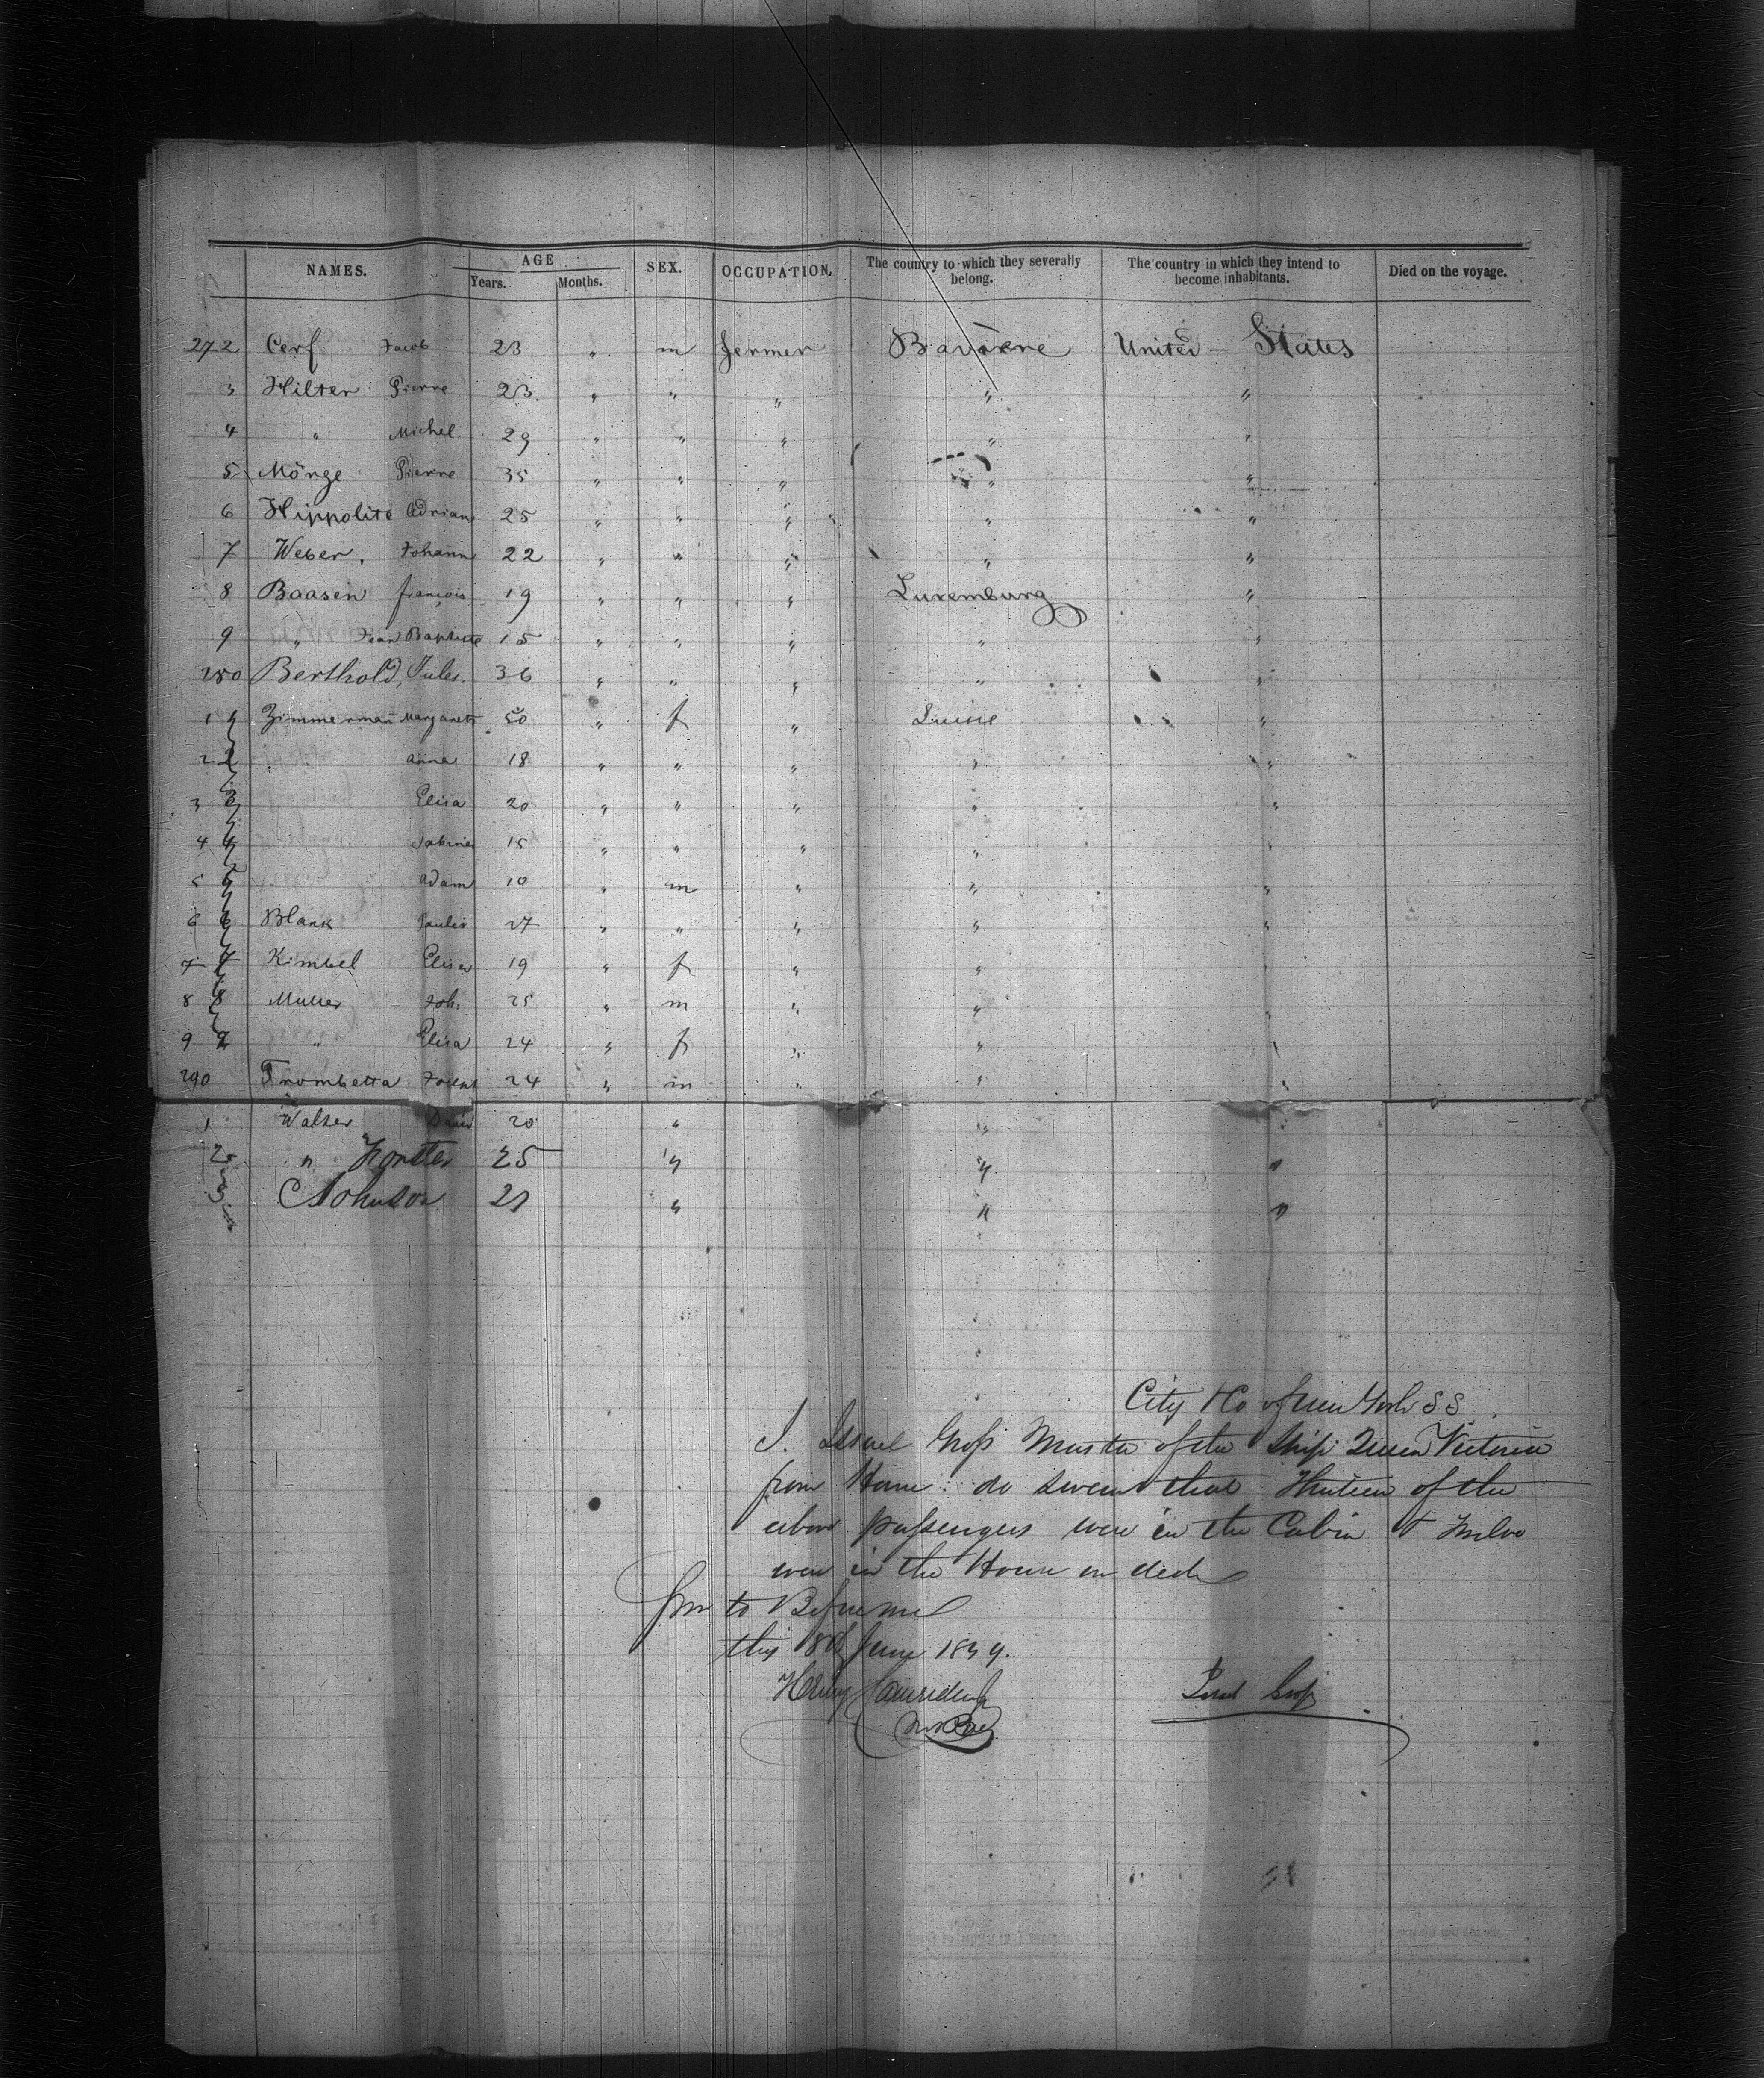 NAMES. AGE Years. Months. SEX. OCCUPATION. The country to which they severally belong. The country in which they intend to become inhabitants. Died on the voyage.
272 Cerf Jacob 23 " m fermer Bavière United States
3 Hilter Pierre 23 " " " " "
4 " Michel 29 " " " " "
5 Mönge Pierre 35 " " " " "
6 Hippolite Adrian 25 " " " " "
7 Weber, Johann 22 " " " " "
8 Baasen françois 19 " " " Luxemburg "
9 " Jean Baptiste 15 " " " " "
280 Berthold, Jules. 36 " " " " "
1 Zimmerman Margareth 50 " f " "
2 2 " Anna 18 " " " " "
3 3 Elisa 20 " " " " "
4 4 Sabine 15 " " " " "
5 5 Adam 10 " m " " "
6 6 Blank 27 " " " " "
7 7 Kimbel Elisa 19 " f " " "
8 8 Muller Joh. 25 " m " " "
9 9 " Elisa 24 " f " " "
290 Trombetta Joseph 24 " m " " "
1 Walter 20 " " "
2 " 25 " " "
3 Johnson 21 " " "
City & Co of New York SS
I. Israel Groſs Master of the Ship Queen Victoria
from Havre do swear that Thirteen of the
above paſsengers were in the Cabin & Twelve
were in the House on deck
Sworn to Before me
this 18th June 1849.
Henry
Israel Groſs